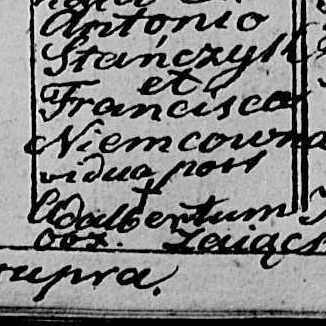 Antonio
Stańczyk
et
Francisca
Niemcowna
vidua post
†
Adalbertum
oox. Zaiącz
supra.